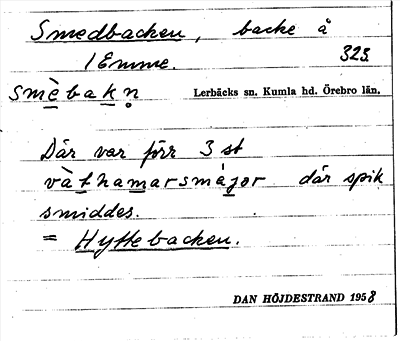 Smedbacken, backe å
1 Emme. 323.
smèbakn̥ Lerbäcks sn. Kumla hd. Örebro län.
Där var förr 3 st
vàthamarsmájor där spik
smiddes.
= Hyttebacken.
DAN HÖJDESTRAND 1958